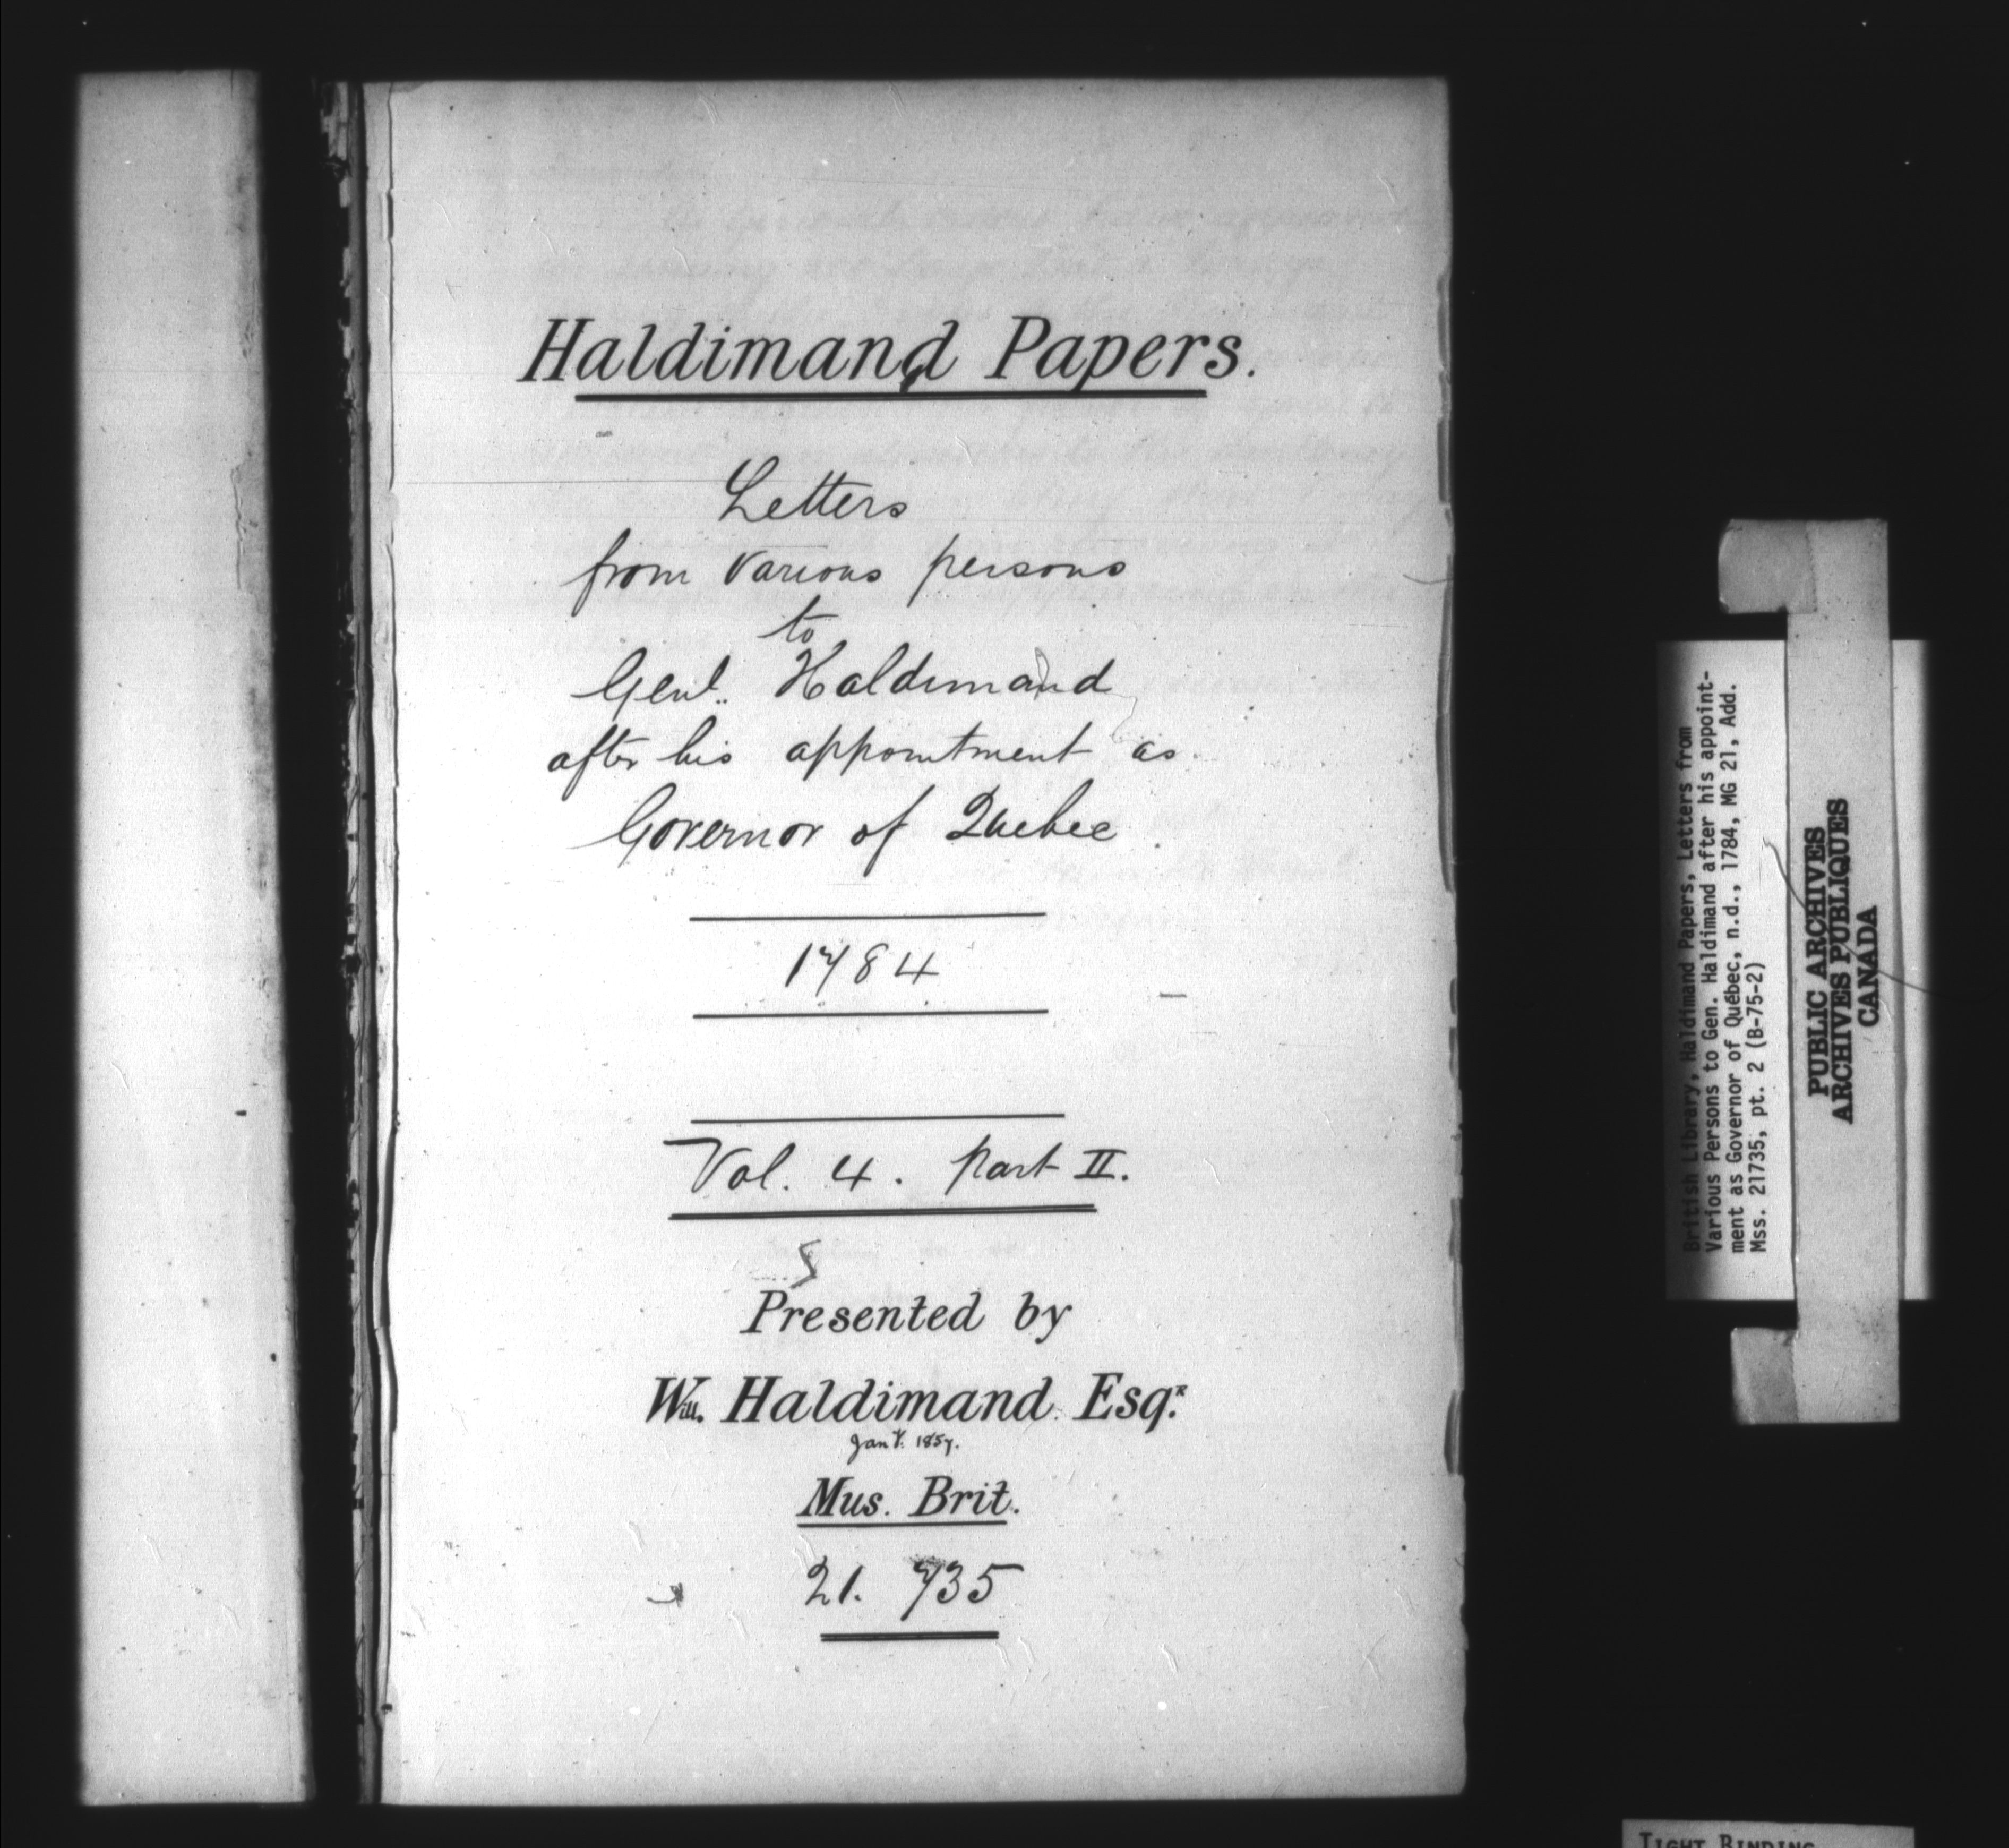 Haldimand Papers.
Letters
from various persons
to
Genl. Haldimand
after his appointment as
Governor of Quebec
1784
Vol. 4. Part II.
5
Presented by
Will. Haldimand Esqr.
Jany. 1857.
Mus. Brit.
21. 735
British Library, Haldimand Papers, Letters from
Various Persons to Gen. Haldimand after his appoint-
ment as Governor of Québec, n.d., 1784, MG 21, Add.
Mss. 21735, pt. 2 (B-75-2)
PUBLIC ARCHIVES
ARCHIVES PUBLIQUES
CANADA
TIGHT BINDING